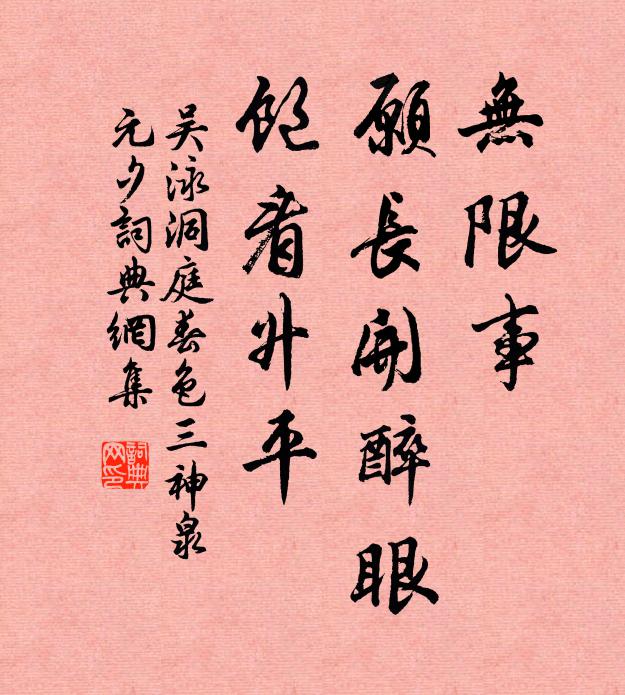 無限事
願長開醉眼
飽看升平
吴泳洞庭春色三神泉
元夕詞典網集
詞典
网印